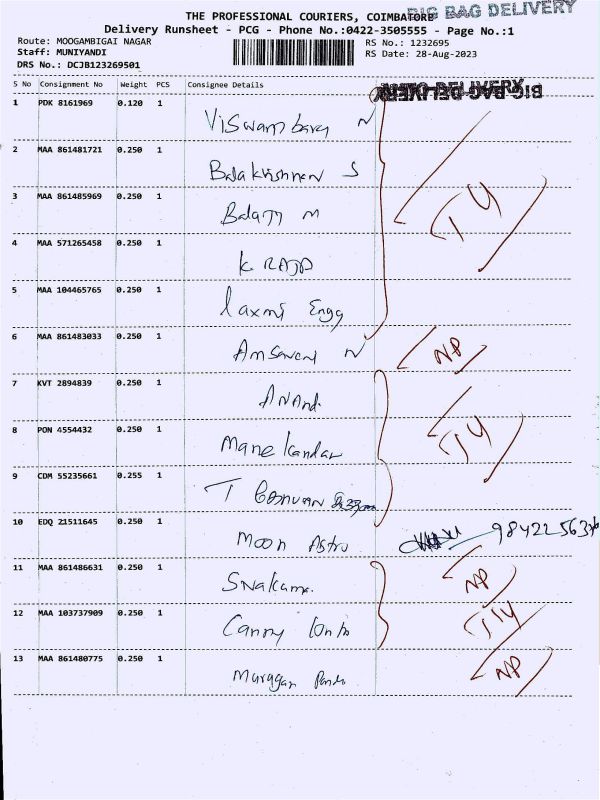 THE PROFESSIONAL COURIERS, COIMBATORE BIG BAG DELIVERY
Delivery Runsheet - PCG - Phone No.:0422-3505555 - Page No.:1
Route: MOOGAMBIGAI NAGAR RS No.: 1232695
Staff: MUNIYANDI RS Date: 28-Aug-2023
DRS No.: DCJB123269501
S No Consignment No Weight PCS Consignee Details BIG BAG DELIVERY
1 PDK 8161969 0.120 1
Viswambaran N
2 MAA 861481721 0.250 1
Balakrishnan S
3 MAA 861485969 0.250 1
Balaji M TY
4 MAA 571265458 0.250 1
K RAJA
5 MAA 104465765 0.250 1
Laxmi Engg
6 MAA 861483033 0.250 1
N NP
7 KVT 2894839 0.250 1
ANAnd.
8 PON 4554432 0.250 1
Manekandan TY
9 CDM 55235661 0.255 1
T
10 EDQ 21511645 0.250 1
Moon Astro
11 MAA 861486631 0.250 1
NP
12 MAA 103737909 0.250 1
TY
13 MAA 861480775 0.250 1
Murugan NP